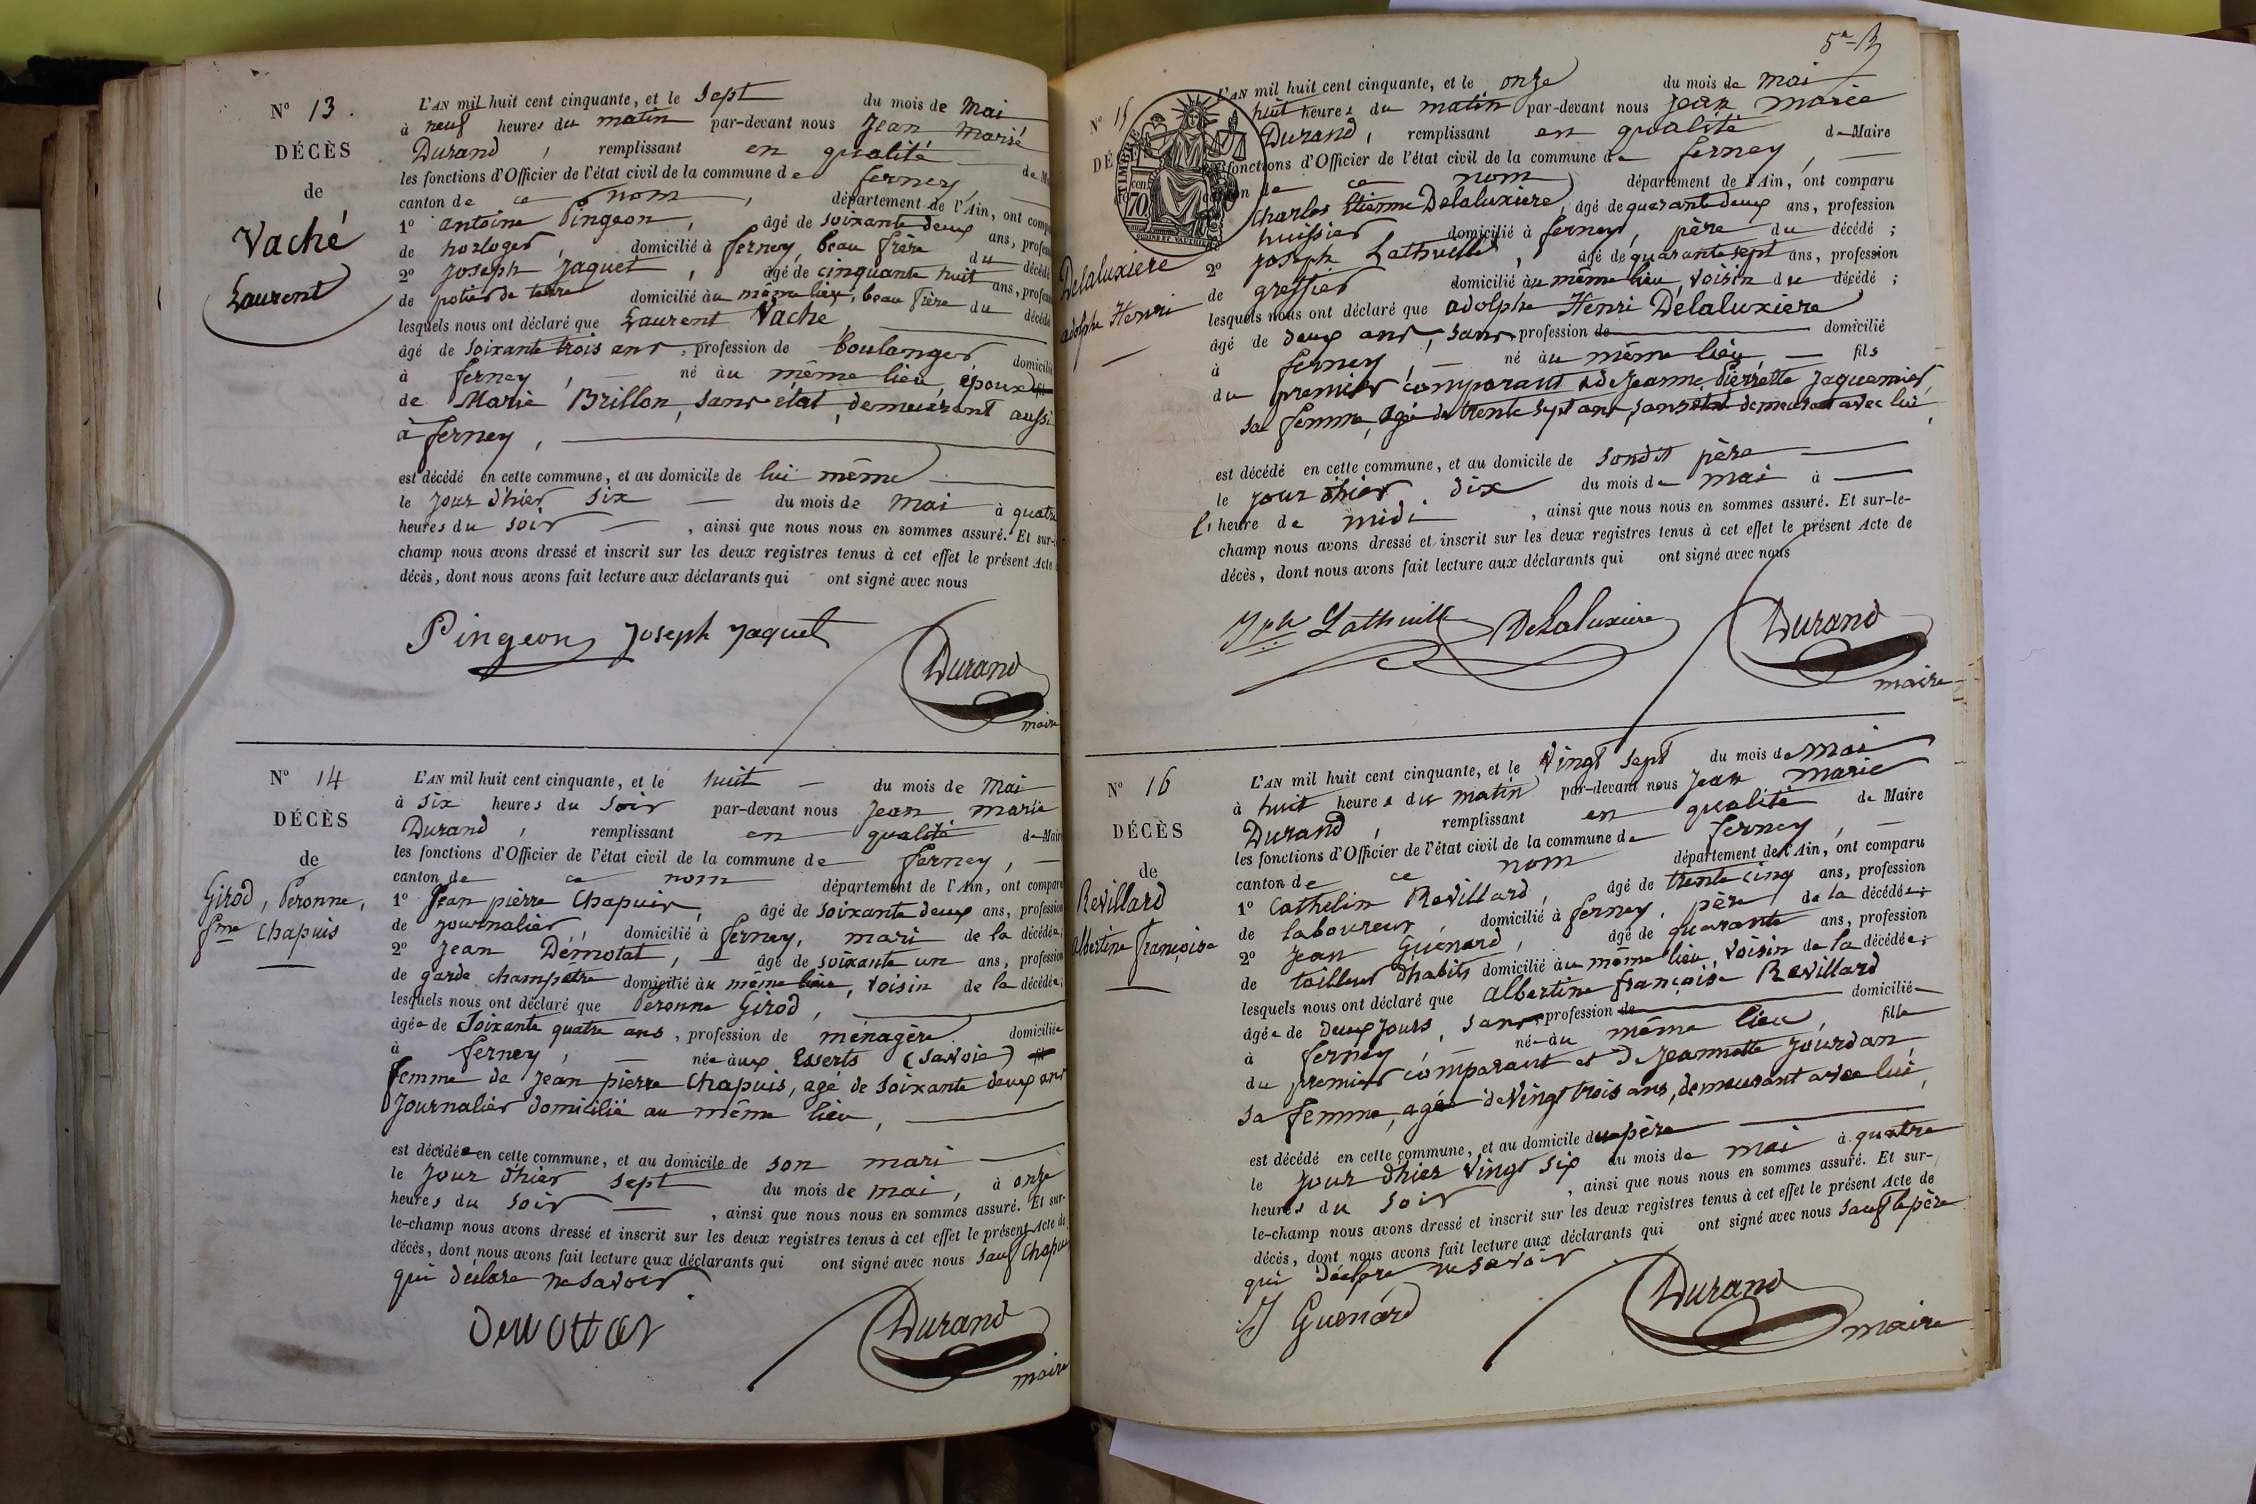 N° 13.
DÉCÈS
de
Vaché
Laurent
L'AN mil huit cent cinquante, et le sept du mois de Mai
à neuf heures du matin par-devant nous Jean Marie
Durand, remplissant en qualité de M
les fonctions d'Officier de l'état civil de la commune de ferney,
canton de ce nom, département de l'Ain, ont comp
1° antoine Pingeon, âgé de soixante deux ans, profess
de horloger, domicilié à ferney, beau frère du décédé
2° Joseph Jaquet, âgé de cinquante huit ans, profess
de potier de terre domicilié au même lieu, beau frère du décédé
lesquels nous ont déclaré que Laurent Vaché
âgé de soixante trois ans, profession de boulanger domicilié
à ferney, né au même lieu, époux fils
de Marie Brillon, sans état, demeurant aussi
à ferney,
est décédé en cette commune, et au domicile de lui même
le jour d'hier six du mois de mai à quatre
heures du soir, ainsi que nous nous en sommes assuré. Et sur-
champ nous avons dressé et inscrit sur les deux registres tenus à cet effet le présent Acte
décès, dont nous avons fait lecture aux déclarants qui ont signé avec nous
Pingeon Joseph Jaquet
Durand
maire
N° 14
DÉCÈS
de
Girod, Peronne,
fme Chapuis
L'AN mil huit cent cinquante, et le huit du mois de Mai
à six heures du soir par-devant nous Jean marie
Durand, remplissant en qualité de Maire
les fonctions d'Officier de l'état civil de la commune de ferney,
canton de ce nom département de l'Ain, ont comparu
1° Jean pierre Chapuis, âgé de soixante deux ans, profession
de journalier, domicilié à ferney, mari de la décédée;
2° Jean Démotat, âgé de soixante un ans, profession
de garde champêtre domicilié au même lieu, voisin de la décédée;
lesquels nous ont déclaré que Peronne Girod,
âgée de Soixante quatre ans, profession de ménagère domiciliée
à ferney, née aux Esserts (Savoie) fil
femme de Jean pierre Chapuis, agé de soixante deux ans
journalier domicilié au même lieu,
est décédée en cette commune, et au domicile de son mari
le jour d'hier sept du mois de mai, à onze
heures du soir, ainsi que nous nous en sommes assuré. Et sur-
le-champ nous avons dressé et inscrit sur les deux registres tenus à cet effet le présent Acte de
décès, dont nous avons fait lecture aux déclarants qui ont signé avec nous sauf Chapuis
qui déclare ne savoir.
Demottaz
Durand
maire
5e
N° 15
DÉ
TIMBRE
70
Delaluxiere
adolphe Henri
L'AN mil huit cent cinquante, et le onze du mois de mai
huit heures du matin par-devant nous Jean Marie
Durand, remplissant en qualité de Maire
fonctions d'Officier de l'état civil de la commune de ferney,
canton de ce nom département de l'Ain, ont comparu
Charles Etienne Delaluxiere, âgé de quarante deux ans, profession
huissier domicilié à ferney, père du décédé;
2° Joseph Lathuille, âgé de quarante sept ans, profession
de greffier domicilié au même lieu, voisin du décédé;
lesquels nous ont déclaré que adolphe Henri Delaluxiere
âgé de deux ans, sans profession de domicilié
à ferney, né au même lieu, fils
du premier comparant & de Jeanne Pierrette Jaquemier,
sa femme, agée de trente sept ans, sans état demeurant avec lui,
est décédé en cette commune, et au domicile de sondit père
le jour d'hier dix du mois de mai à
l'heure de midi, ainsi que nous nous en sommes assuré. Et sur-le-
champ nous avons dressé et inscrit sur les deux registres tenus à cet effet le présent Acte de
décès, dont nous avons fait lecture aux déclarants qui ont signé avec nous
Jph Lathuille Delaluxiere Durand
maire
N° 16
DÉCÈS
de
Revillard
albertine françoise
L'AN mil huit cent cinquante, et le vingt sept du mois de mai
à huit heures du matin par-devant nous Jean Marie
Durand, remplissant en qualité de Maire
les fonctions d'Officier de l'état civil de la commune de ferney,
canton de ce nom département de l'Ain, ont comparu
1° Cathelin Revillard, âgé de trente cinq ans, profession
de laboureur, domicilié à ferney, père de la décédée;
2° Jean Guénard, âgé de quarante ans, profession
de tailleur d'habits domicilié au même lieu, voisin de la décédée;
lesquels nous ont déclaré que albertine françoise Revillard
âgée de deux jours, sans profession de domiciliée
à ferney, née au même lieu, fille
du premier comparant et de Jeannette Jourdan,
sa femme, agée de vingt trois ans, demeurant avec lui,
est décédé en cette commune, et au domicile du père
le jour d'hier vingt six du mois de mai à quatre
heures du soir, ainsi que nous nous en sommes assuré. Et sur-
le-champ nous avons dressé et inscrit sur les deux registres tenus à cet effet le présent Acte de
décès, dont nous avons fait lecture aux déclarants qui ont signé avec nous sauf le père
qui déclare ne savoir
J Guenard
Durand
maire